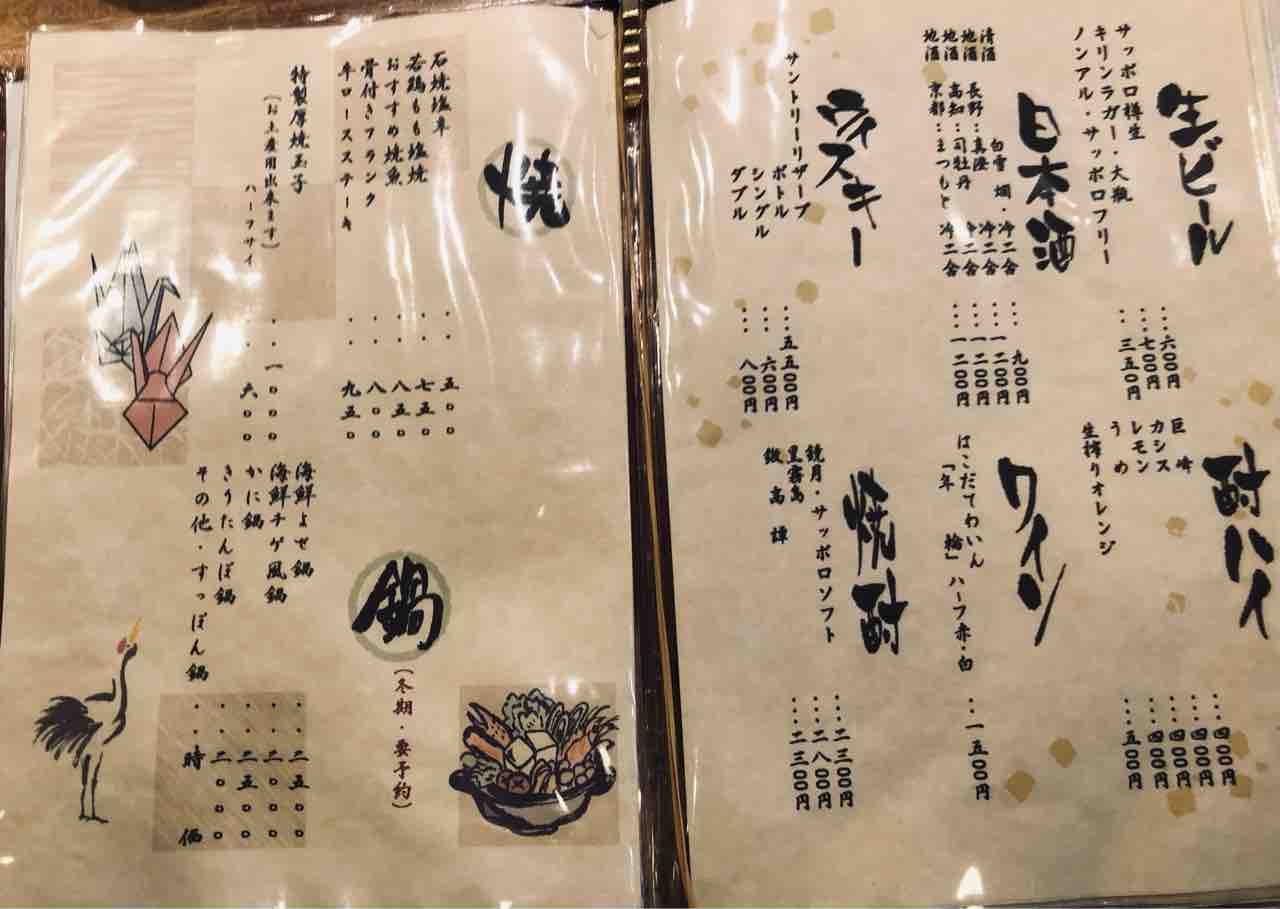 生ビール
サッポロ樽生 …六00円
キリンラガー・大瓶 …七00円
ノンアル・サッポロフリー …三五0円
日本酒
清酒 白雪 燗・冷二合 …九00円
地酒 長野:真澄 冷二合 …一二00円
地酒 高知:司牡丹 冷二合 …一二00円
地酒 京都:まつもと 冷二合 …一二00円
ウィスキー
サントリーリザーブ
ボトル …五五00円
シングル …六00円
ダブル …八00円
酎ハイ
巨峰 …四00円
カシス …四00円
レモン …四00円
うめ …四00円
生搾りオレンジ …五00円
ワイン
はこだてわいん
「年輪」ハーフ赤・白 …一五00円
焼酎
鏡月・サッポロソフト …二三00円
黒霧島 …二八00円
鍛高譚 …二三00円
焼
石焼塩辛 ・・五〇〇
若鶏もも塩焼 ・・七五〇
おすすめ焼魚 ・・八五〇
骨付きフランク ・・八〇〇
牛ロースステーキ ・・九五〇
特製厚焼玉子 ・・一〇〇〇
(お土産用出来ます)
ハーフサイ ・・六〇〇
鍋
(冬期・要予約)
海鮮よせ鍋 ・・二五〇〇
海鮮チゲ風鍋 ・・二〇〇〇
かに鍋 ・・二五〇〇
きりたんぽ鍋 ・・二〇〇〇
その他・すっぽん鍋 ・・時価